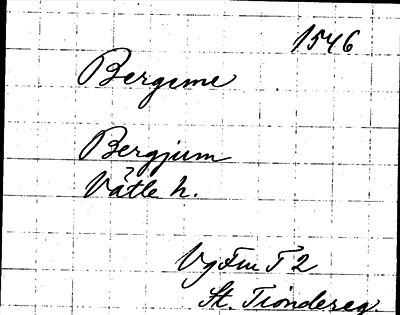 1546
Bergeme
Bergjum
Vätle h.
VgFmT 2
St. Tiondereg.